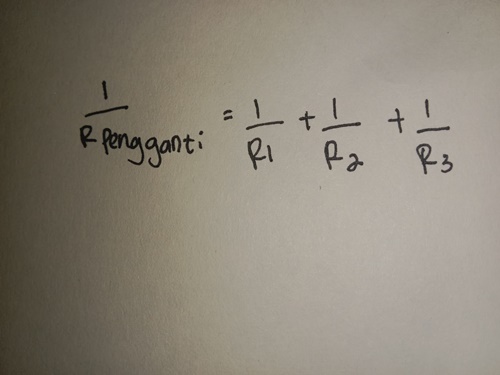 1/R pengganti = 1/R1 + 1/R2 + 1/R3